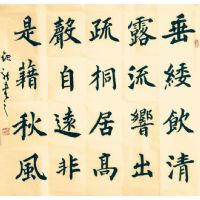 垂緌飲清
露流響出
疏桐居高
聲自遠非
是藉秋風